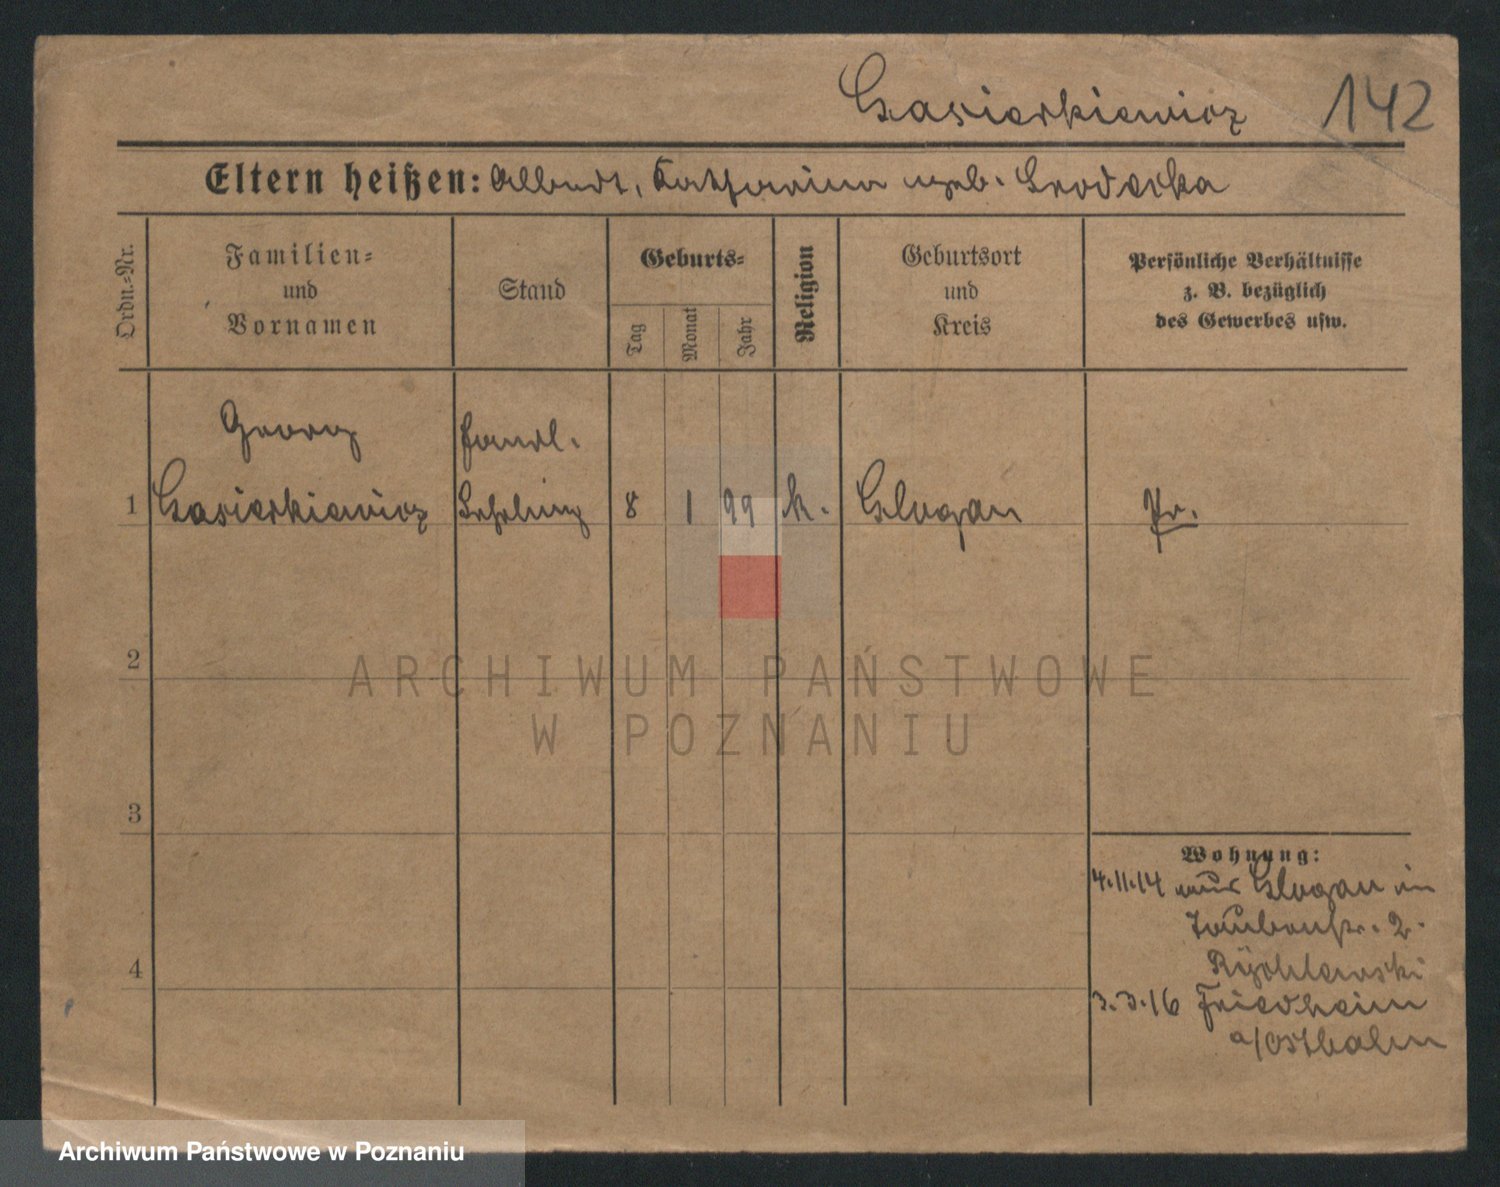 Gasierkiewicz 142
Eltern heißen: Albert, Katharina geb. Grodecka
Ordn.-Nr.
Familien-
und
Vornamen
Stand
Geburts-
Tag
Monat
Jahr
Religion
Geburtsort
und
Kreis
Persönliche Verhältnisse
z. B. bezüglich
des Gewerbes usw.
Georg Handl.
1 Gasierkiewicz Lehrling 8 1 99 k. Glogau Pr.
2
3
4
Wohnung:
4.11.14 aus Glogau in
Taubenstr. 2.
Rychlewski
3.3.16 Friedheim
a/Ostbahn
ARCHIWUM PAŃSTWOWE
W POZNANIU
Archiwum Państwowe w Poznaniu